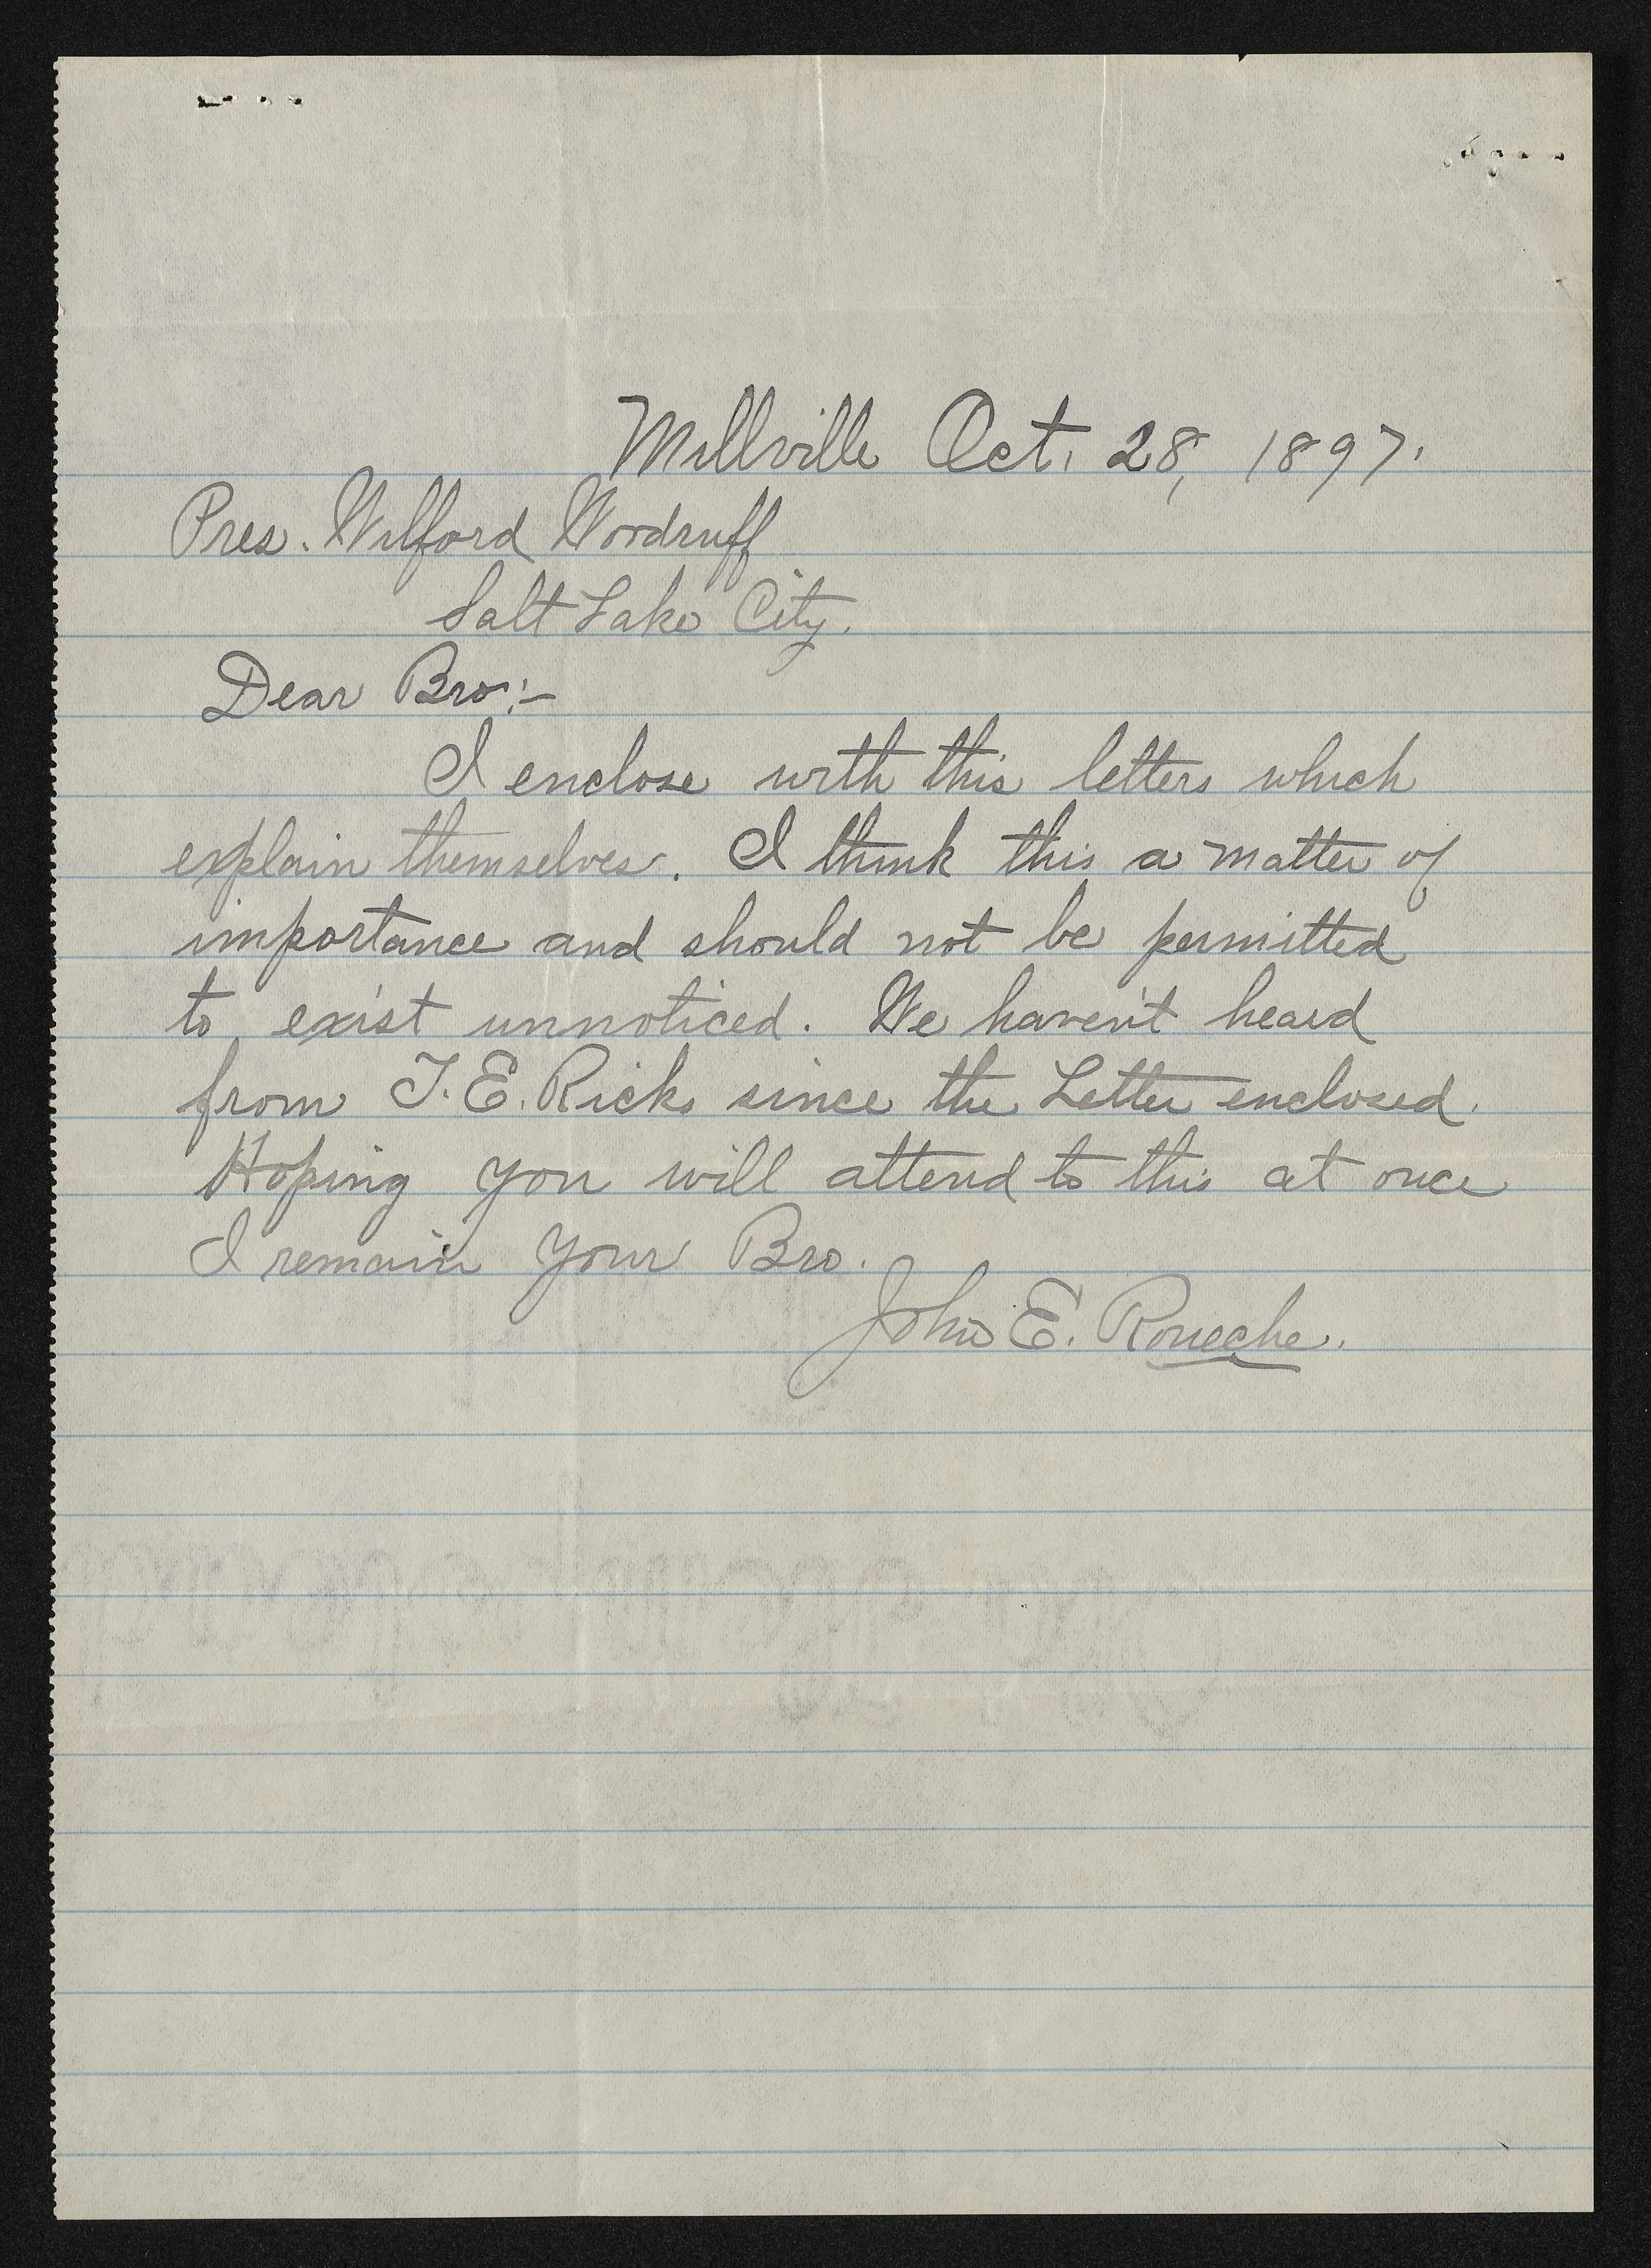 Millville Oct. 28, 1897.
Pres. Wilford Woodruff
Salt Lake City.
Dear Bro:-
I enclose with this letters which
explain themselves. I think this a matter of
importance and should not be permitted
to exist unnoticed. We haven't heard
from T. E. Ricks since the Letter enclosed.
Hoping you will attend to this at once
I remain Your Bro.
John E. Roueche.